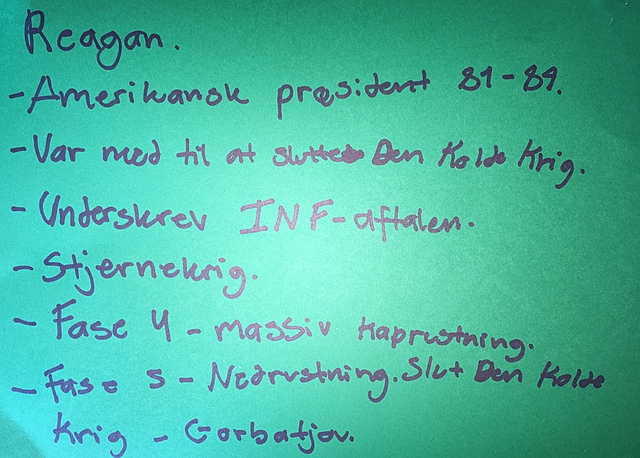 Reagan.
- Amerikansk præsident 81-89.
- Var med til at slutte Den Kolde Krig.
- Underskrev INF-aftalen.
- Stjernekrig.
- Fase 4 - massiv kaprustning.
- Fase 5 - Nedrustning. Slut Den Kolde
Krig - Gorbatjov.